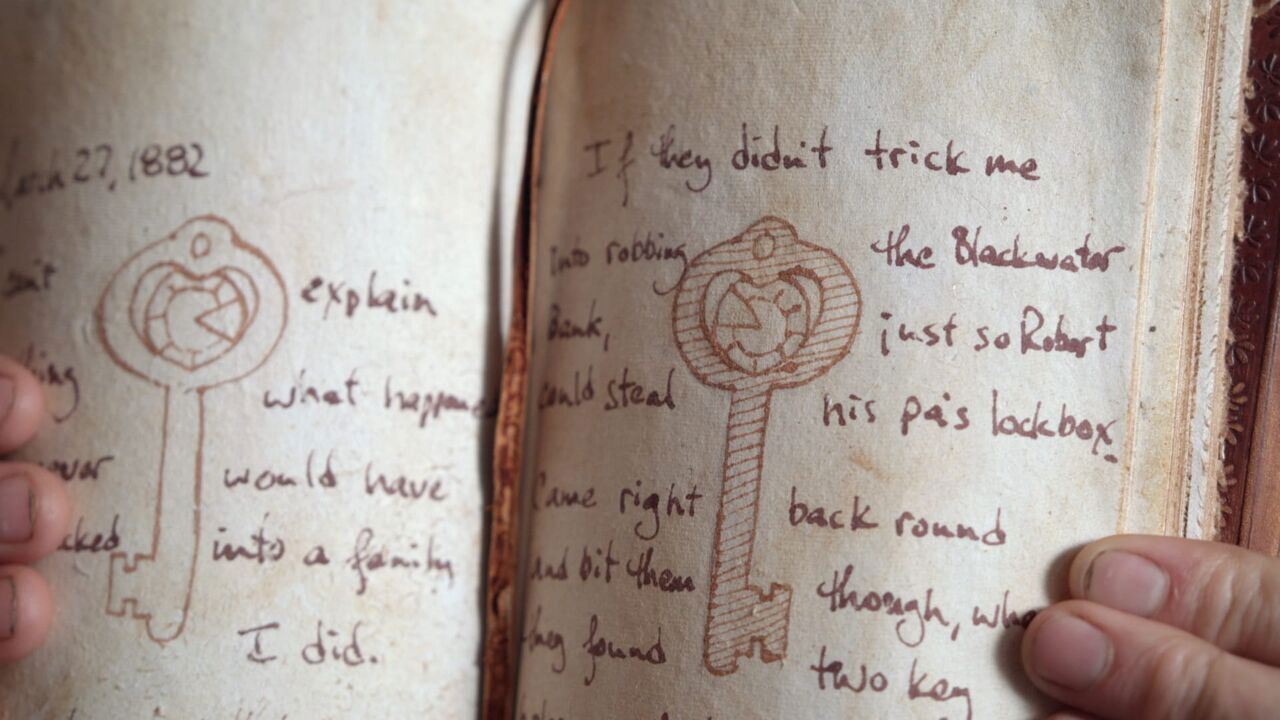 27, 1882
explain
what
would have
into a family
I did.
If they didn't trick me
Into robbing the Blackwater
Bank, just so Robert
could steal his pa's lockbox.
Came right back round
and bit them though,
they found two key